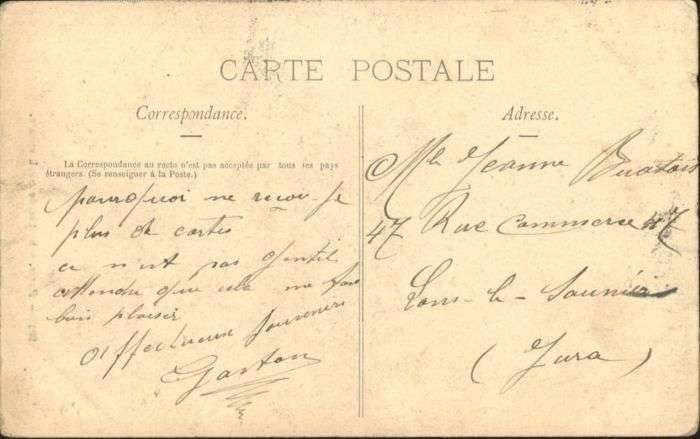 CARTE POSTALE
Correspondance.
La Correspondance au recto n'est pas acceptée par tous les pays
étrangers. (Se renseigner à la Poste.)
pourquoi ne reçois-je
plus de cartes
ce n'est pas gentil
attendu que cela me fais
bien plaisir
Affectueux Souvenirs
Gaston
Adresse.
Mlle Jeanne
47 Rue Commerce 47
Lons-le-Saunier
(Jura)